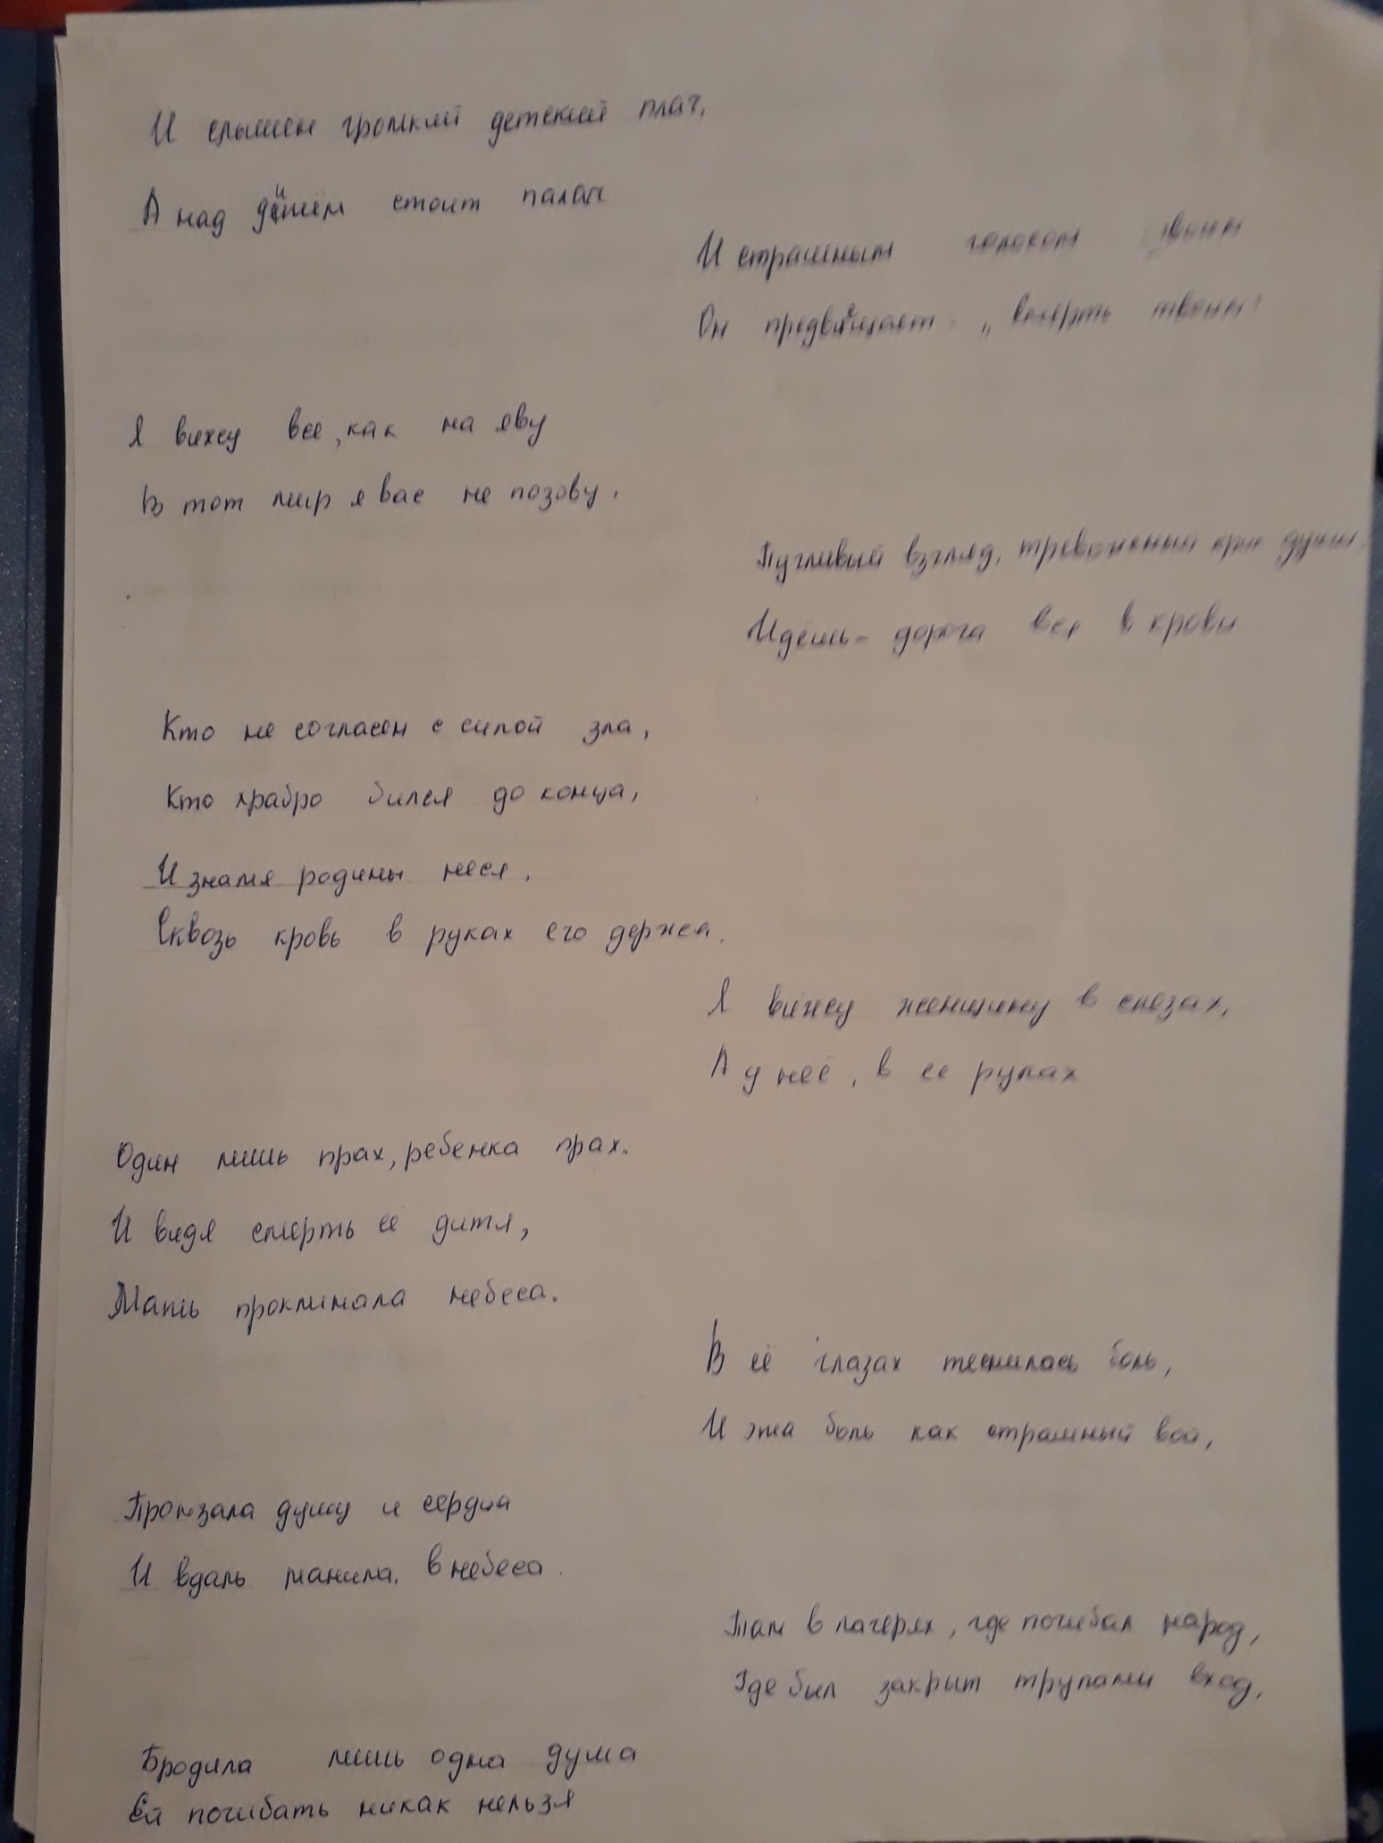 И слышен громкий детский плач,
А над дитём стоит палач
И страшным голосом своим
Он предвещает "смерть твоим"
Я вижу всё, как на яву
В тот мир я вас не позову.
Пугливый взгляд, тревожный крик души,
Идёшь - дорога вся в крови
Кто не согласен с силой зла,
Кто храбро бился до конца,
И знамя родины неся,
Сквозь кровь в руках его держа.
Я вижу женщину в слезах,
А у неё, в ее руках
Один лишь прах, ребенка прах.
И видя смерть её дитя,
Мать проклинала небеса.
В её глазах теснилась боль,
И эта боль как страшный вой,
Пронзала душу и сердца
И вдаль манила, в небеса.
Там в лагерях, где погибал народ,
Где был закрыт трупами вход,
Бродила лишь одна душа
Ей погибать никак нельзя